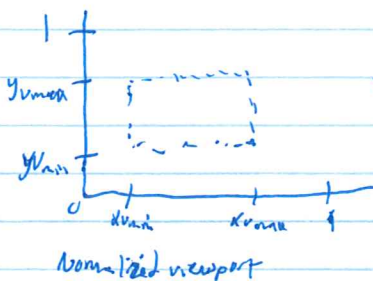 1
yvmax
yvmin
0 xvmin xvmax 1
Normalized viewport